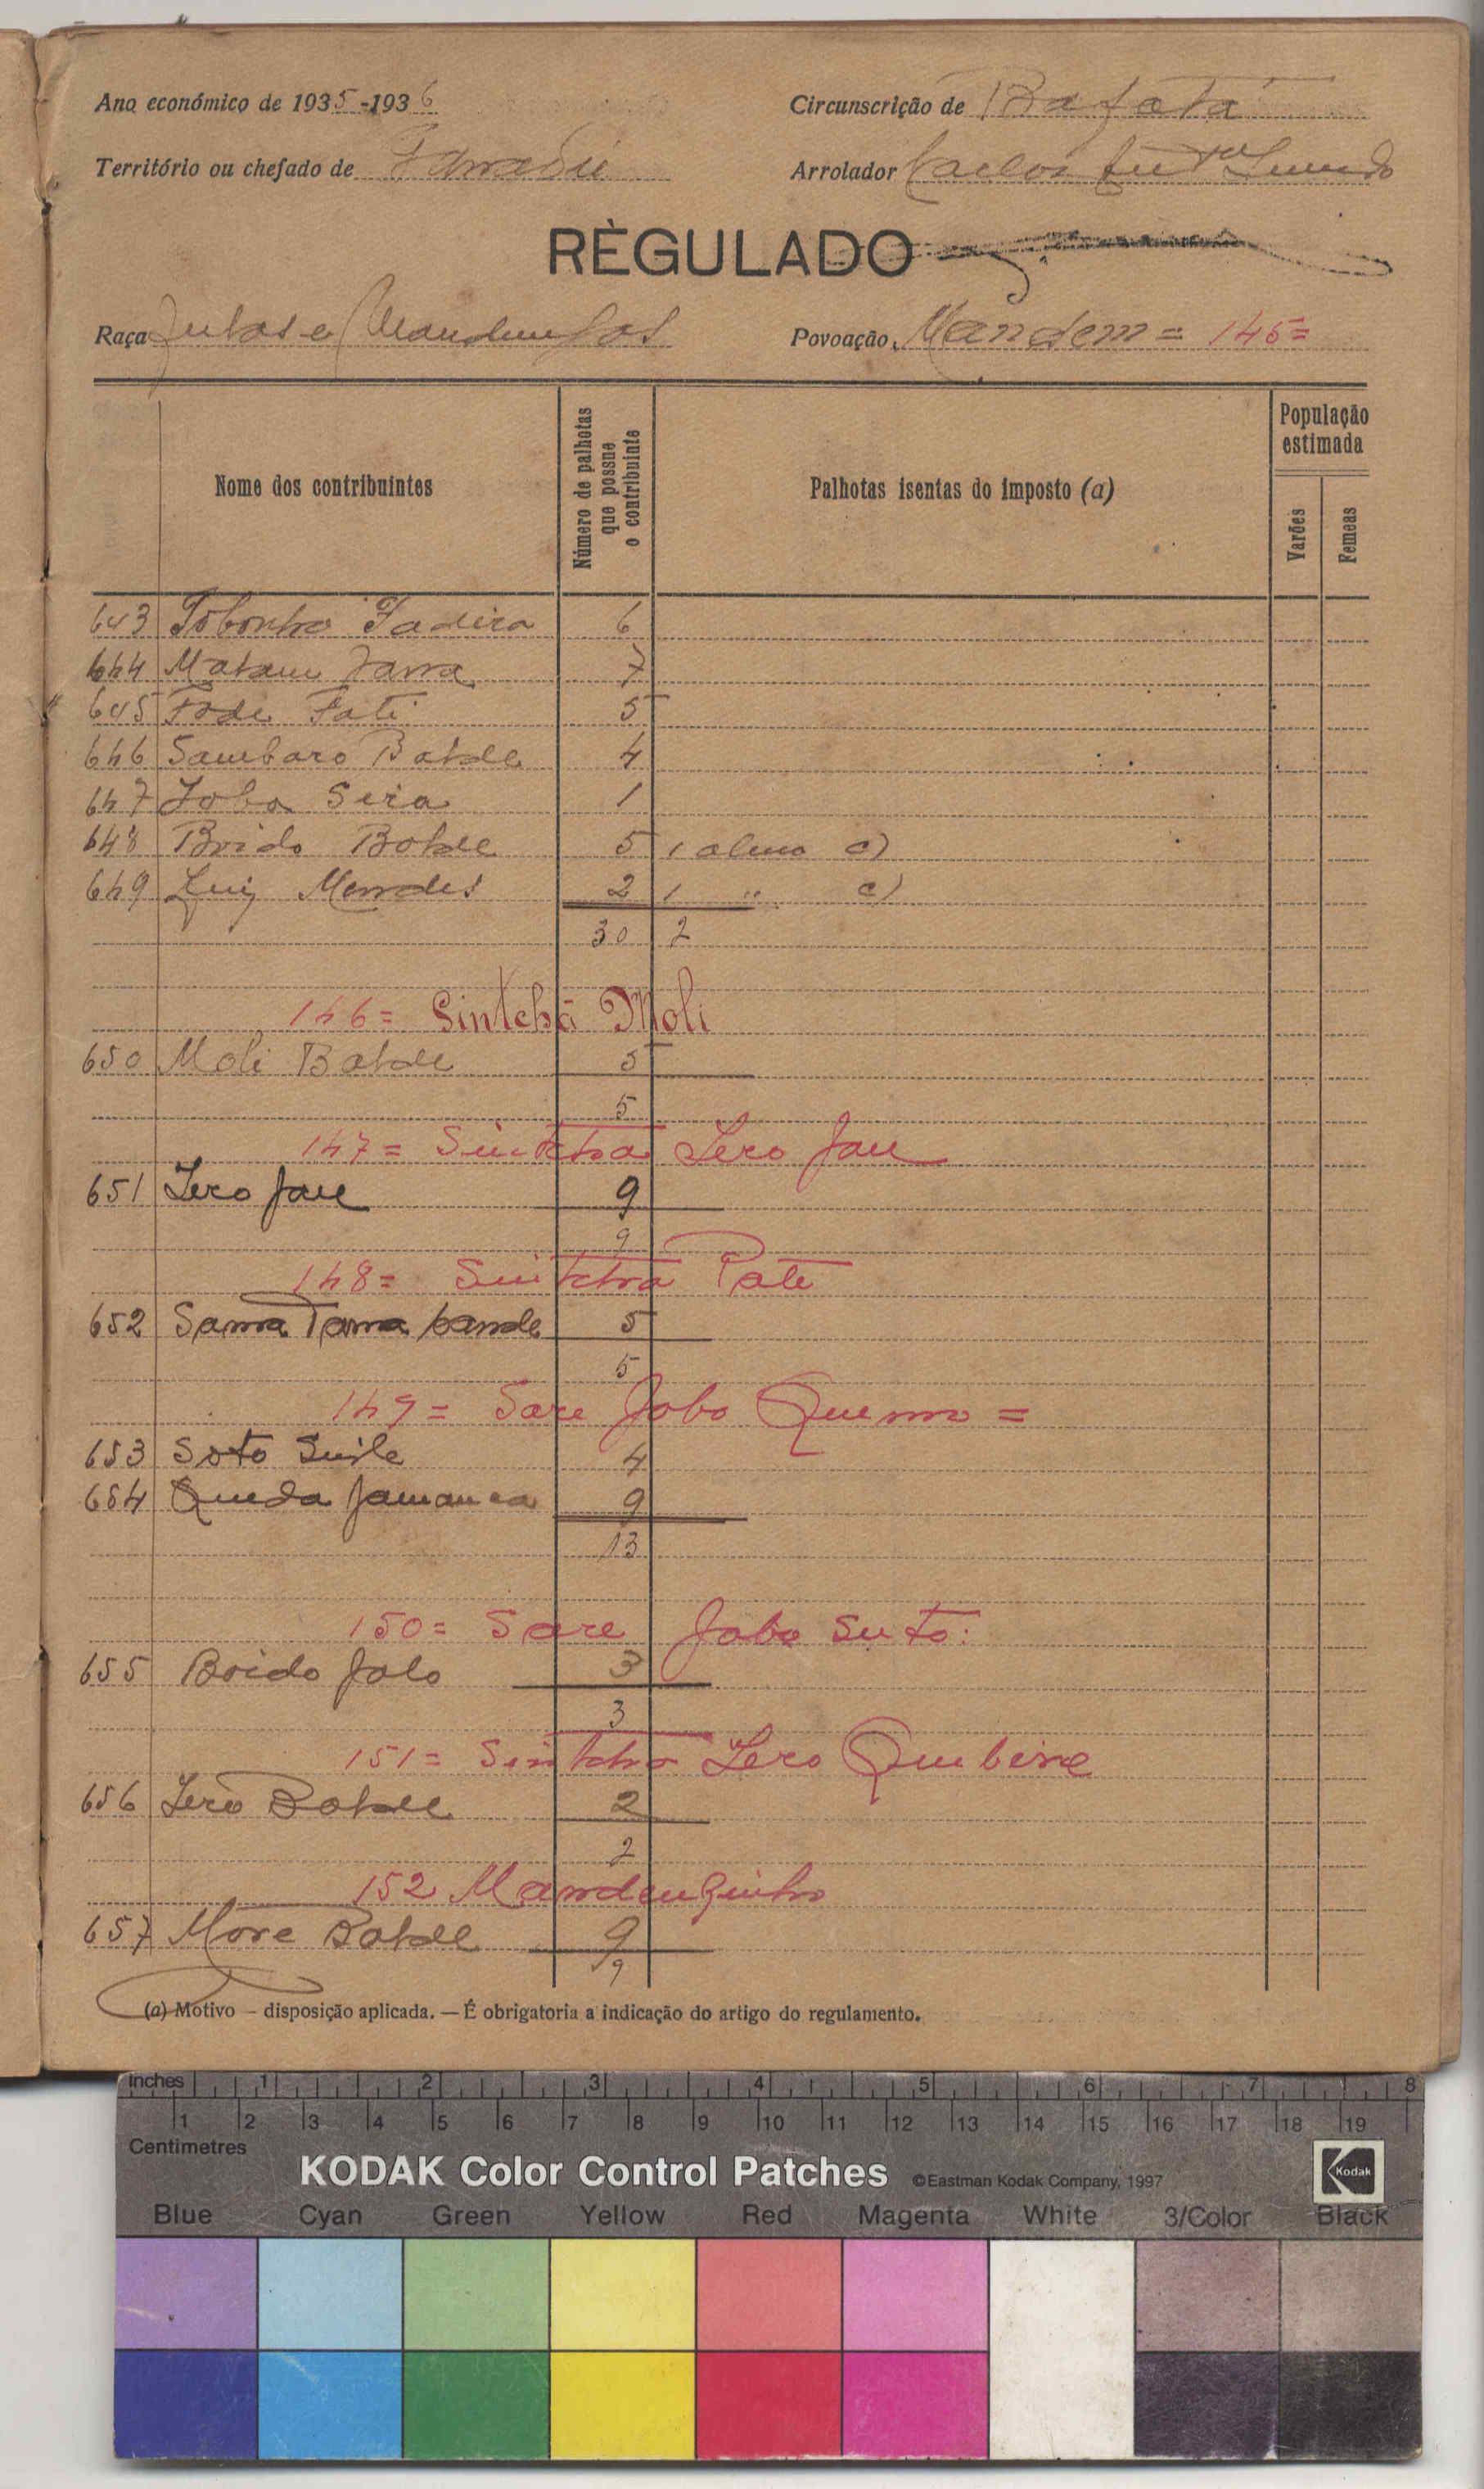 Ano económico de 1935-1936
Circunscrição de Bafatá
Território ou chefado de
Arrolador Carlos
RÈGULADO
Raça Fulas e Mandingas
Povoação, Mandem = 145=
Nome dos contribuintes
Número de palhotas que possue o contribuinte
Palhotas isentas do imposto (a)
População estimada
Varões
Femeas
643 Fadira 6
644 7
645 Fode Fati 5
646 Sambaro Balde 4
647 Joba Seira 1
648 Boido Balde 5 1 aluno c)
649 Luiz Mendes 2 1 " c)
30 2
146= Sintchã Moli
650 Moli Balde 5
5
147= Sintcha Lero Jau
651 Lero Jau 9
9
148= Sintcha Pate
652 Samba 5
5
149= Sare Jobo Quemo =
653 Soto Suile 4
654 Queda Jamanca 9
13
150= Sare Jobo Suto:
655 Boido Jalo 3
3
151= Sintcha Lero Qumbine
656 Lero Balde 2
2
152 Mandenguinho
657 More Balde 9
9
(a) Motivo — disposição aplicada. — É obrigatoria a indicação do artigo do regulamento.
Inches 1 2 3 4 5 6 7 8
1 2 3 4 5 6 7 8 9 10 11 12 13 14 15 16 17 18 19
Centimetres
KODAK Color Control Patches ©Eastman Kodak Company, 1997 Kodak
Blue Cyan Green Yellow Red Magenta White 3/Color Black